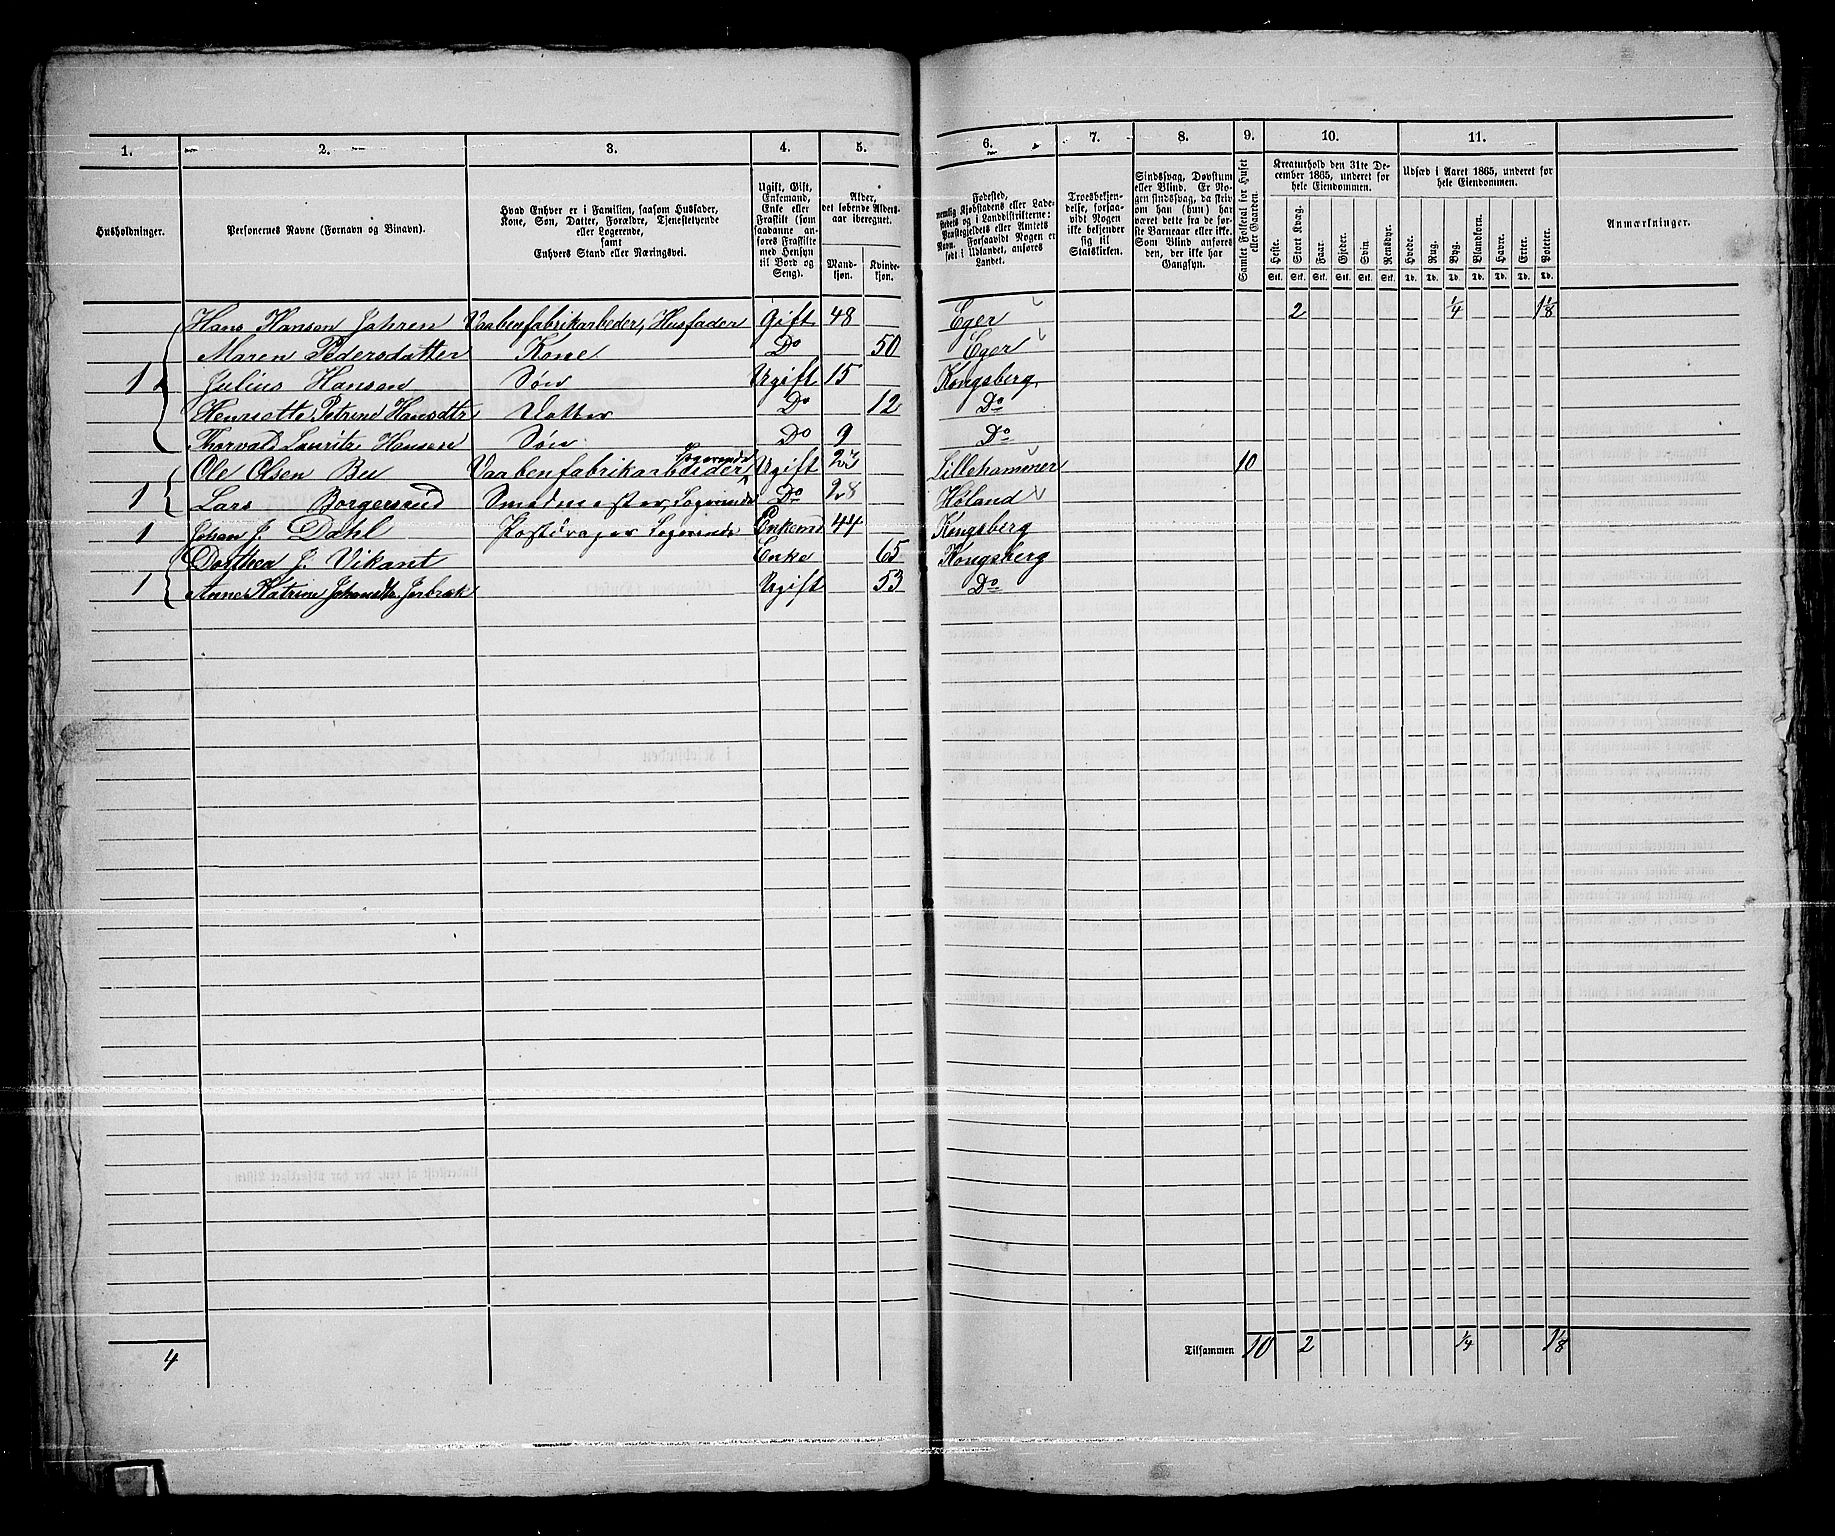 1. 2. 3. 4. 5. 6. 7. 8. 9. 10. 11.
Husholdninger.
Personernes Navne (Fornavn og Binavn).
Hvad Enhver er i Familien, saasom Husfader,
Kone, Søn, Datter, Forældre, Tjenestetyende
eller Logerende,
samt
Enhvers Stand eller Næringsvei.
Ugift, Gift,
Enkemand,
Enke eller
Fraskilt (som
saadanne an-
føres Fraskilte
med Hensyn
til Bord og
Seng).
Alder,
det løbende Alders-
aar iberegnet.
Mand-
kjøn.
Kvinde-
kjøn.
Fødested,
nemlig Kjøbstadens eller Lade-
stedets og i Landdistrikterne:
Præstegjeldets eller Amtets
Navn. Forsaavidt Nogen er
født i Udlandet, anføres
Landet.
Troesbekjen-
delse, forsaa-
vidt Nogen
ikke bekjender
sig til
Statskirken.
Sindssvag, Døvstum
eller Blind. Er No-
gen sindssvag, da skrives
om han (hun) har
været dette fra de før-
ste Barneaar eller ikke.
Som Blind anføres
den, der ikke har
Gangsyn.
Samlet Folketal for Huset
eller Gaarden.
Kreaturhold den 31te De-
cember 1865, underet for
hele Eiendommen.
Heste. Stort Kvæg. Faar. Gjeder. Svin. Rensdyr.
Stk. Stk. Stk. Stk. Stk. Stk.
Udsæd i Aaret 1865, underet for
hele Eiendommen.
Hvede. Rug. Byg. Blandkorn. Havre. Erter. Poteter.
Td. Td. Td. Td. Td. Td. Td.
Anmærkninger.
Hans Hansen Jahren Vaabenfabrikarbeder, Husfader Gift 48 Eger 2 1/4 1 1/8
Maren Pedersdatter Kone Do 50 Eger
1 Julius Hansen Søn Ugift 15 Kongsberg
Henriette Petrine Hansdtr Datter Do 12 Do
Thorvald Lauritz Hansen Søn Do 9 Do
Ole Olsen Bu Vaabenfabrikarbeider Logerende Ugift 23 Lillehammer 10
1 Lars Borgersrud Smedmester, Logerende Do 28 Høland
1 Johan J. Dahl Postdrager Logerende Enkemd 44 Kongsberg
Dorthea J. Vikant Enke 65 Kongsberg
1 Anne Katrine Johansdtr. Jorbræk Ugift 53 Do
4 Tilsammen 10 2 1/4 1 1/8